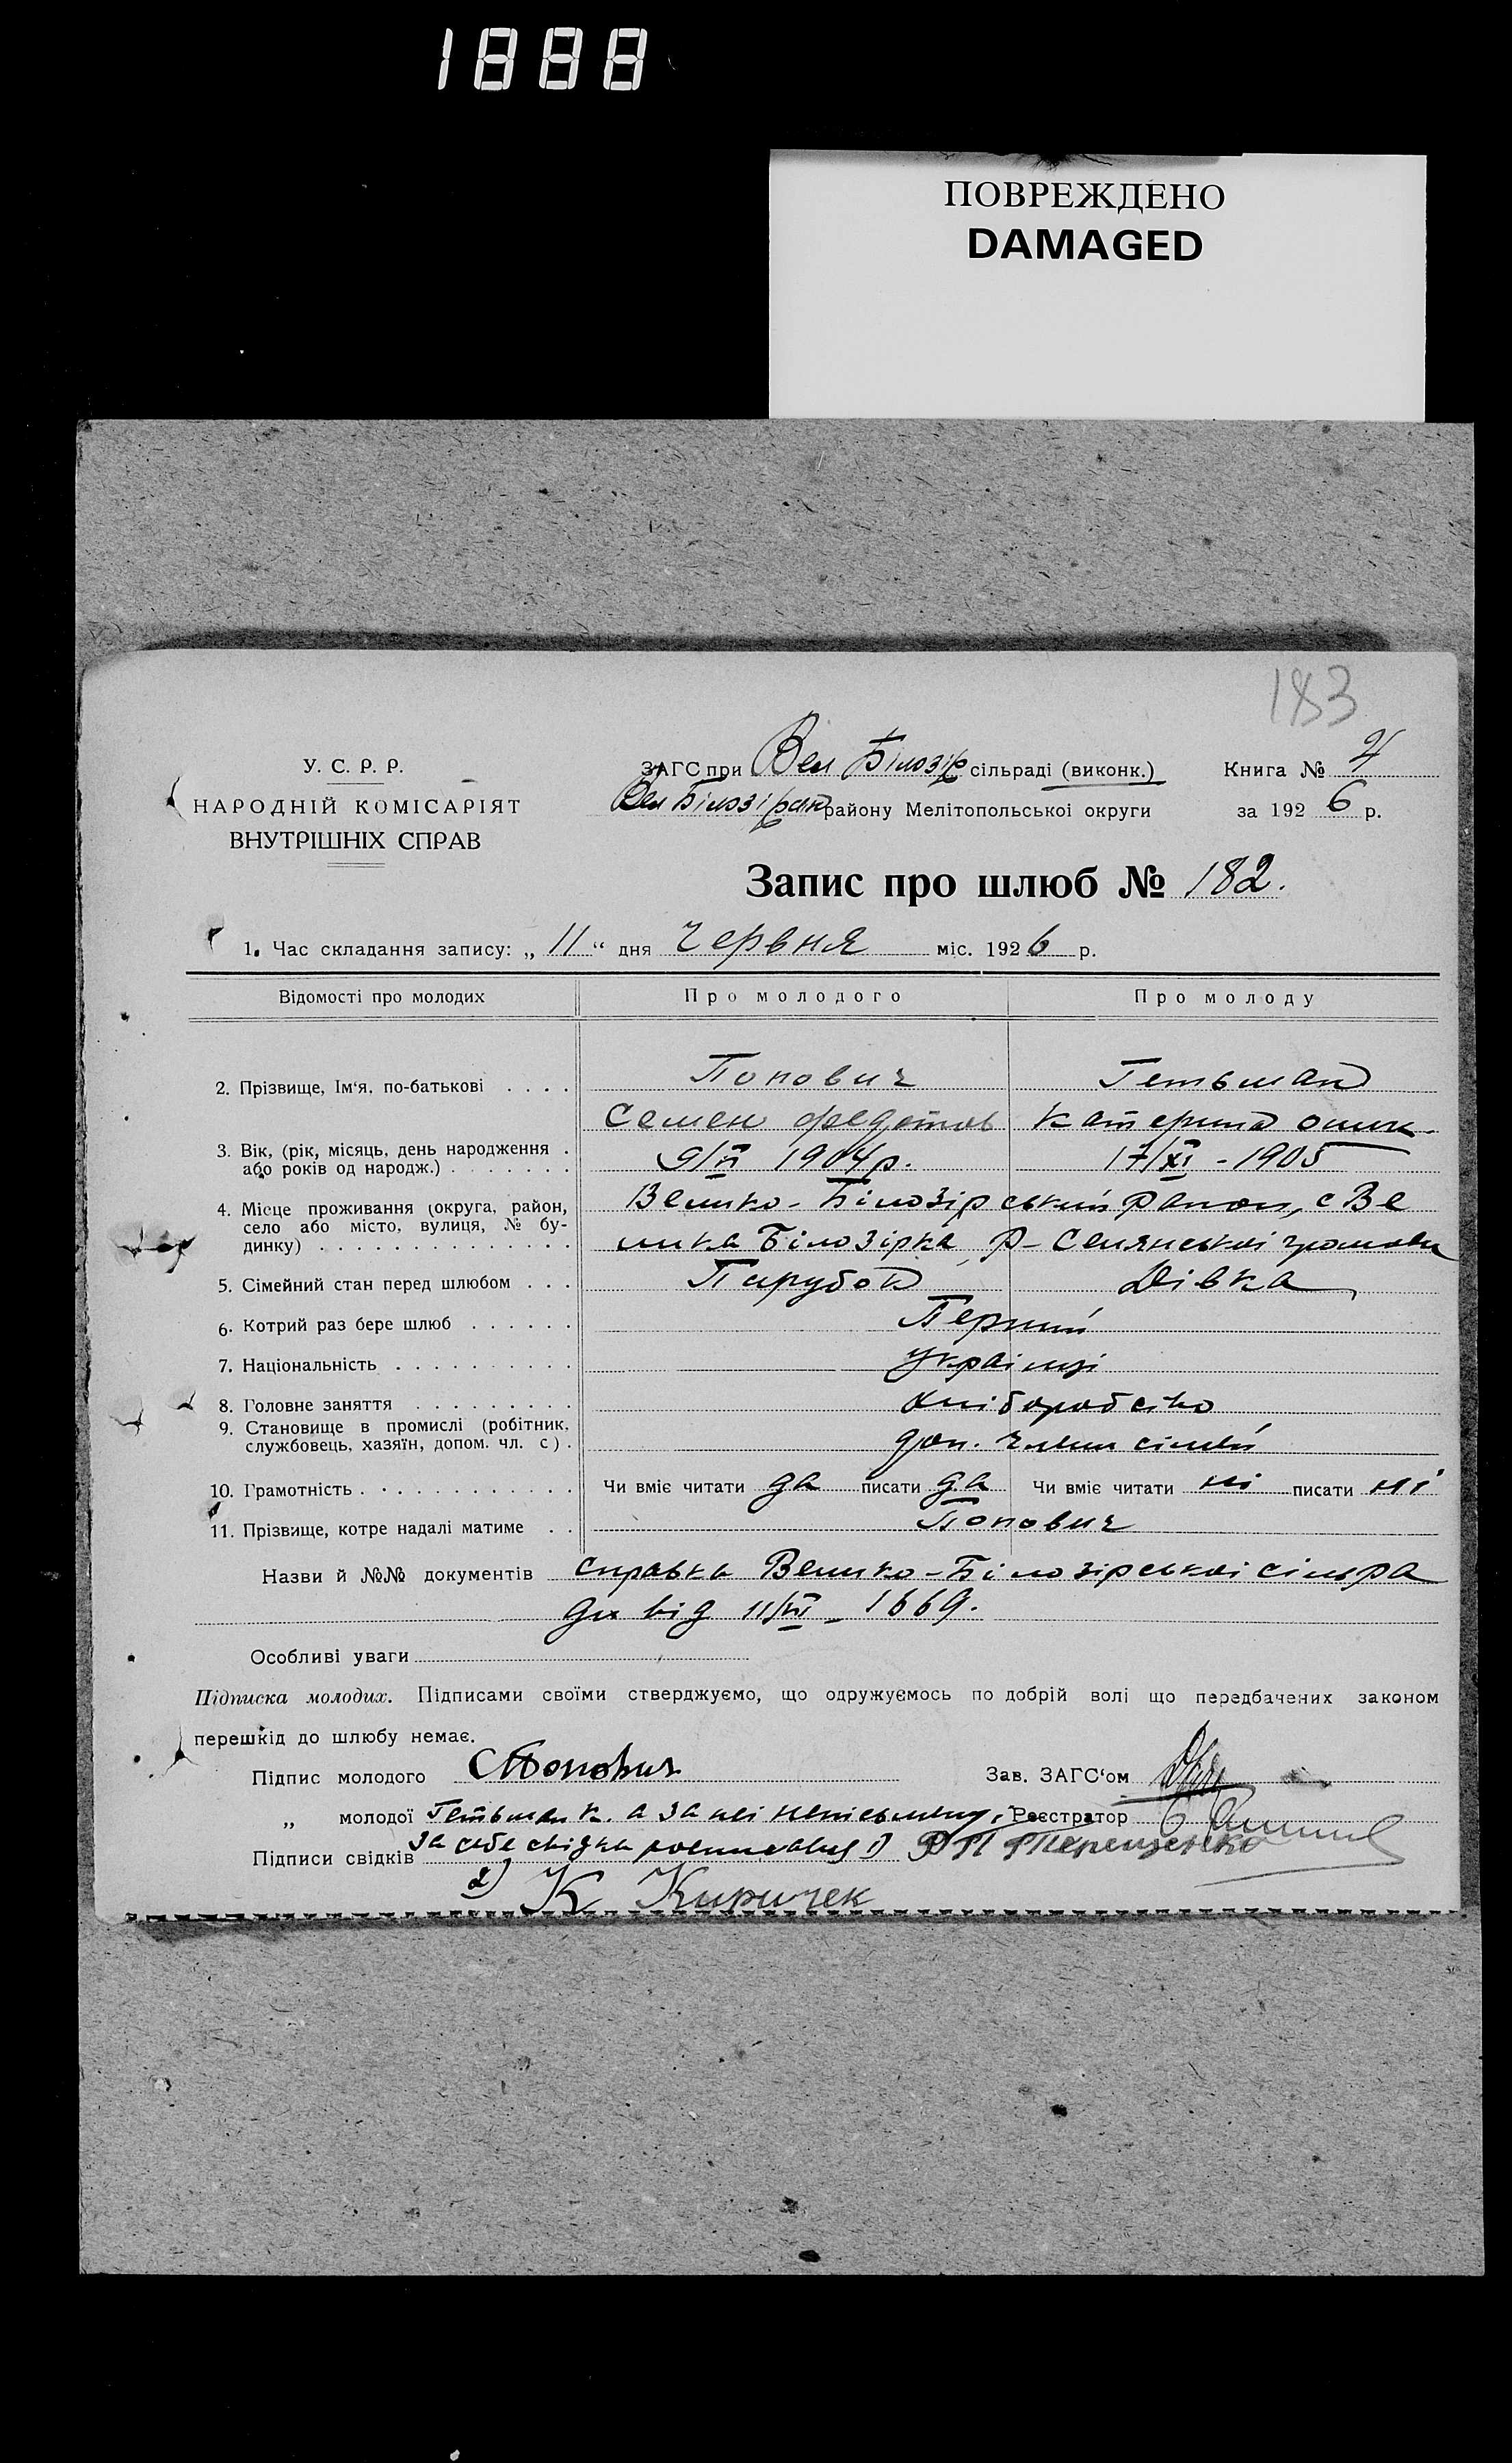 1888
ПОВРЕЖДЕНО
DAMAGED
183
У. С. Р. Р.
НАРОДНІЙ КОМІСАРІЯТ
ВНУТРІШНІХ СПРАВ
ЗАГС при Вел Білозір сільраді (виконк.)
Вел Білозірск району Мелітопольської округи
Книга № 4
за 1926 р.
Запис про шлюб № 182.
1. Час складання запису: „11“ дня Червня міс. 1926 р.
Відомості про молодих Про молодого Про молоду
2. Прізвище, Ім'я, по-батькові . . . . Попович Гетьман
Семен Федотов Катерина
3. Вік, (рік, місяць, день народження .
або років од народж.) . . . . . . . 1904 р. 17/XI - 1905
4. Місце проживання (округа, район,
село або місто, вулиця, № бу-
динку) . . . . . . . . . . . . . .
Велико-Білозірський район, с Ве
лика Білозірка, Р-Селянської громади
5. Сімейний стан перед шлюбом . . . Парубок Дівка
6. Котрий раз бере шлюб . . . . . . Перший
7. Національність . . . . . . . . . . Українці
8. Головне заняття . . . . . . . . . хліборобство
9. Становище в промислі (робітник,
службовець, хазяїн, допом. чл. с) . доп. члени сімєй
10. Грамотність . . . . . . . . . . . Чи вміє читати да писати да Чи вміє читати ні писати ні
11. Прізвище, котре надалі матиме . . Попович
Назви й №№ документів справка Велико-Білозірської сільра
ди від 11/VI - 1669.
Особливі уваги
Підписка молодих. Підписами своїми стверджуємо, що одружуємось по добрій волі що передбачених законом
перешкід до шлюбу немає.
Підпис молодого СПопович Зав. ЗАГС'ом
„ молодої Гетьман К. а за неї неписьмену, Реєстратор
Підписи свідків за себе свідки росписались 1) Терещенко
2) К Киричек